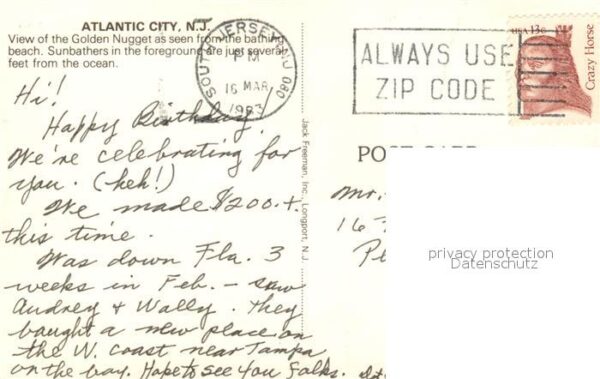 ATLANTIC CITY, N.J.
View of the Golden Nugget as seen from the bathing
beach. Sunbathers in the foreground are just several
feet from the ocean.
SOUTH JERSEY NJ 080
PM
16 MAR
1983
ALWAYS USE
ZIP CODE
USA 13c
Crazy Horse
Hi!
Happy Birthday!
We're celebrating for
you. (heh!)
We made $200.+
this time.
Was down Fla. 3
weeks in Feb. – saw
Audrey & Wally. They
bought a new place on
the W. coast near Tampa
on the bay. Hope to see you folks.
Jack Freeman, Inc., Longport, N.J.
POST CARD
Mr.
16
Pe
privacy protection
Datenschutz